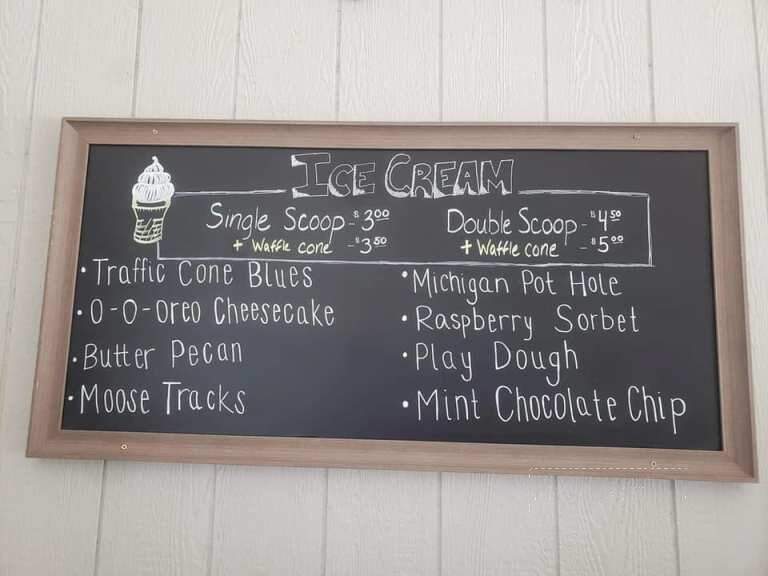 ICE CREAM
Single Scoop - $3.00
+ Waffle cone - $3.50
Double Scoop - $4.50
+ Waffle cone - $5.00
• Traffic Cone Blues
• O-O-Oreo Cheesecake
• Butter Pecan
• Moose Tracks
• Michigan Pot Hole
• Raspberry Sorbet
• Play Dough
• Mint Chocolate Chip